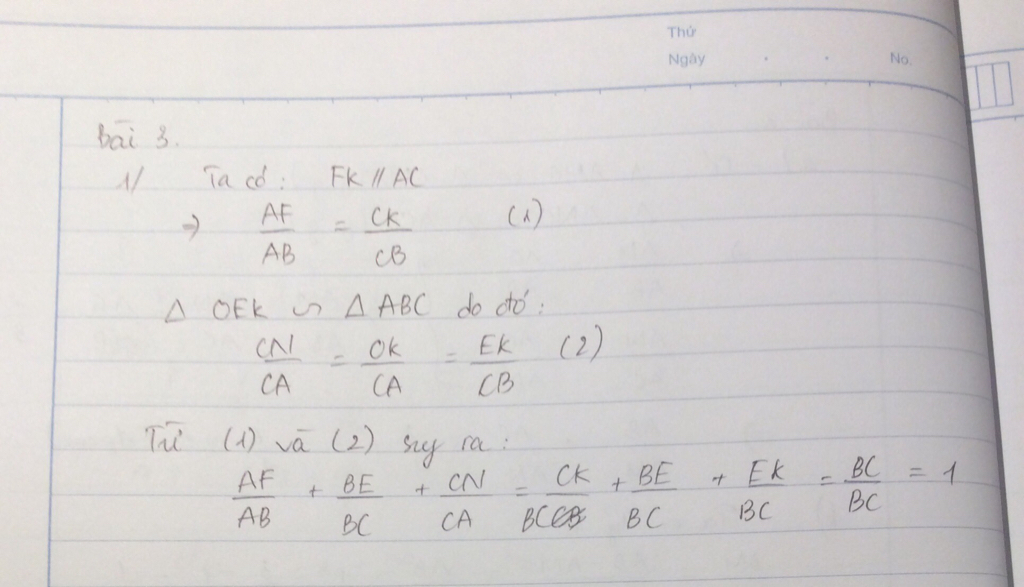 Thứ
Ngày . . No.
Bài 3.
1/ Ta có: FK // AC
=> AF/AB = CK/CB (1)
Δ OEK ∽ Δ ABC do đó:
CN/CA = OK/CA = EK/CB (2)
Từ (1) và (2) suy ra:
AF/AB + BE/BC + CN/CA = CK/BC + BE/BC + EK/BC = BC/BC = 1